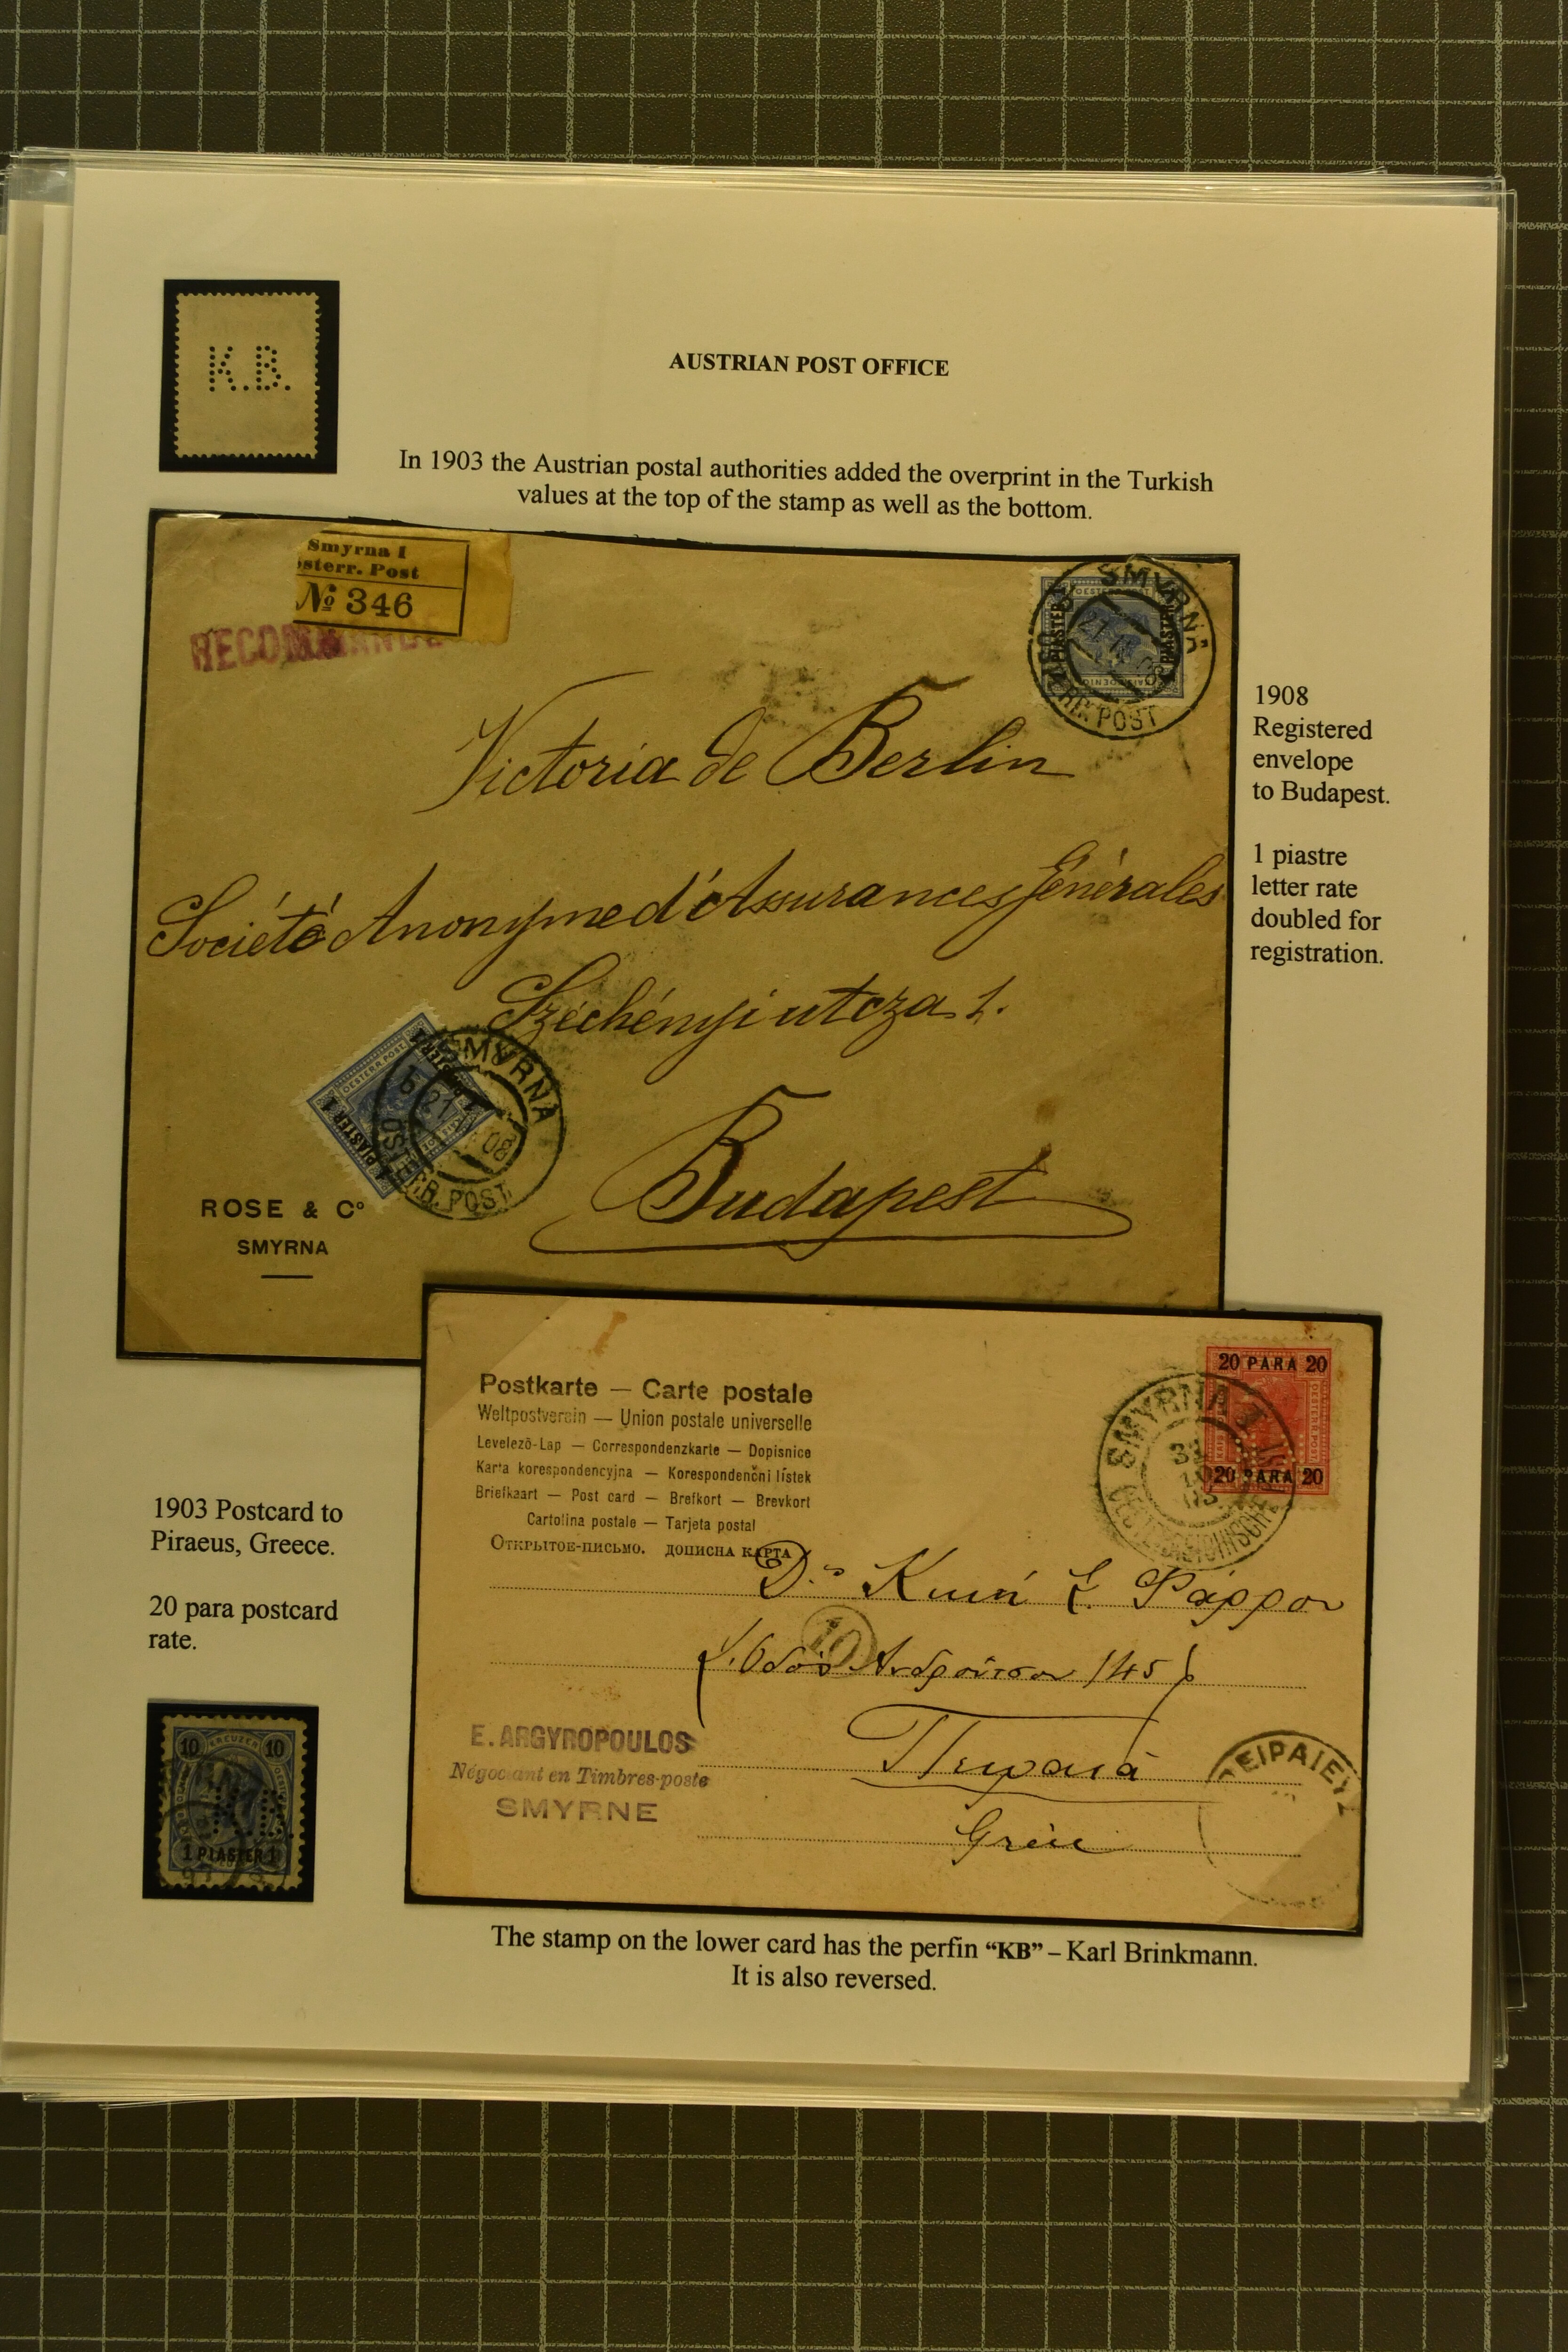 K.B.
AUSTRIAN POST OFFICE
In 1903 the Austrian postal authorities added the overprint in the Turkish
values at the top of the stamp as well as the bottom.
Smyrna I
sterr. Post
No 346
RECOMMANDÉ
SMYRNA
POST
Victoria de Berlin
Société Anonyme d'Assurances Générales
Széchényi utcza 1.
Budapest
OESTERR. POST
1 PIASTER 1
SMYRNA
21 08
POST
ROSE & Cº
SMYRNA
1908
Registered
envelope
to Budapest.
1 piastre
letter rate
doubled for
registration.
Postkarte — Carte postale
Weltpostverein — Union postale universelle
Levelező-Lap — Correspondenzkarte — Dopisnice
Karta korespondencyjna — Korespondenční lístek
Briefkaart — Post card — Brefkort — Brevkort
Cartolina postale — Tarjeta postal
Открытое-письмо. дописна карта
20 PARA 20
20 PARA 20
SMYRNA
10
145
Grèce
ΠΕΙΡΑΙΕΥΣ
E. ARGYROPOULOS
Négociant en Timbres-poste
SMYRNE
1903 Postcard to
Piraeus, Greece.
20 para postcard
rate.
10 KREUZER 10
1 PIASTER 1
The stamp on the lower card has the perfin “KB” – Karl Brinkmann.
It is also reversed.